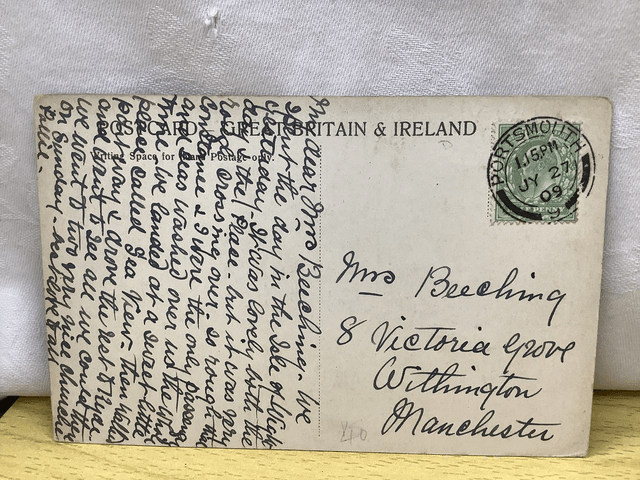 POSTCARD GREAT BRITAIN & IRELAND
Writing Space for Inland Postage only.
PORTSMOUTH
1.15 PM
JY 27
09
My dear Mrs Beeching. We
spent the day in the Isle of Wight
yesterday. It was lovely both the
day & the place - but it was very
rough crossing over, so rough that
Constance & I were the only passengers
and seas washed over us the whole
time. We landed at a sweet little
place called Sea View - then walked
part way & drove the rest to Ryde
and went to see all we could there
We went to two very nice churches
on Sunday.
Billie.
Mrs Beeching
8 Victoria Grove
Withington
Manchester
40